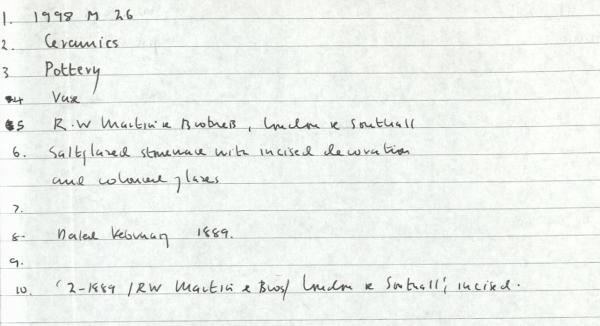 1. 1998 M 26
2. Ceramics
3 Pottery
4 Vase
5 R.W Martin & Brothers, London & Southall
6. Saltglazed stoneware with incised decoration
and coloured glazes
7.
8. Dated February 1889.
9.
10. '2-1889 / RW Martin & Bros / London & Southall', incised.